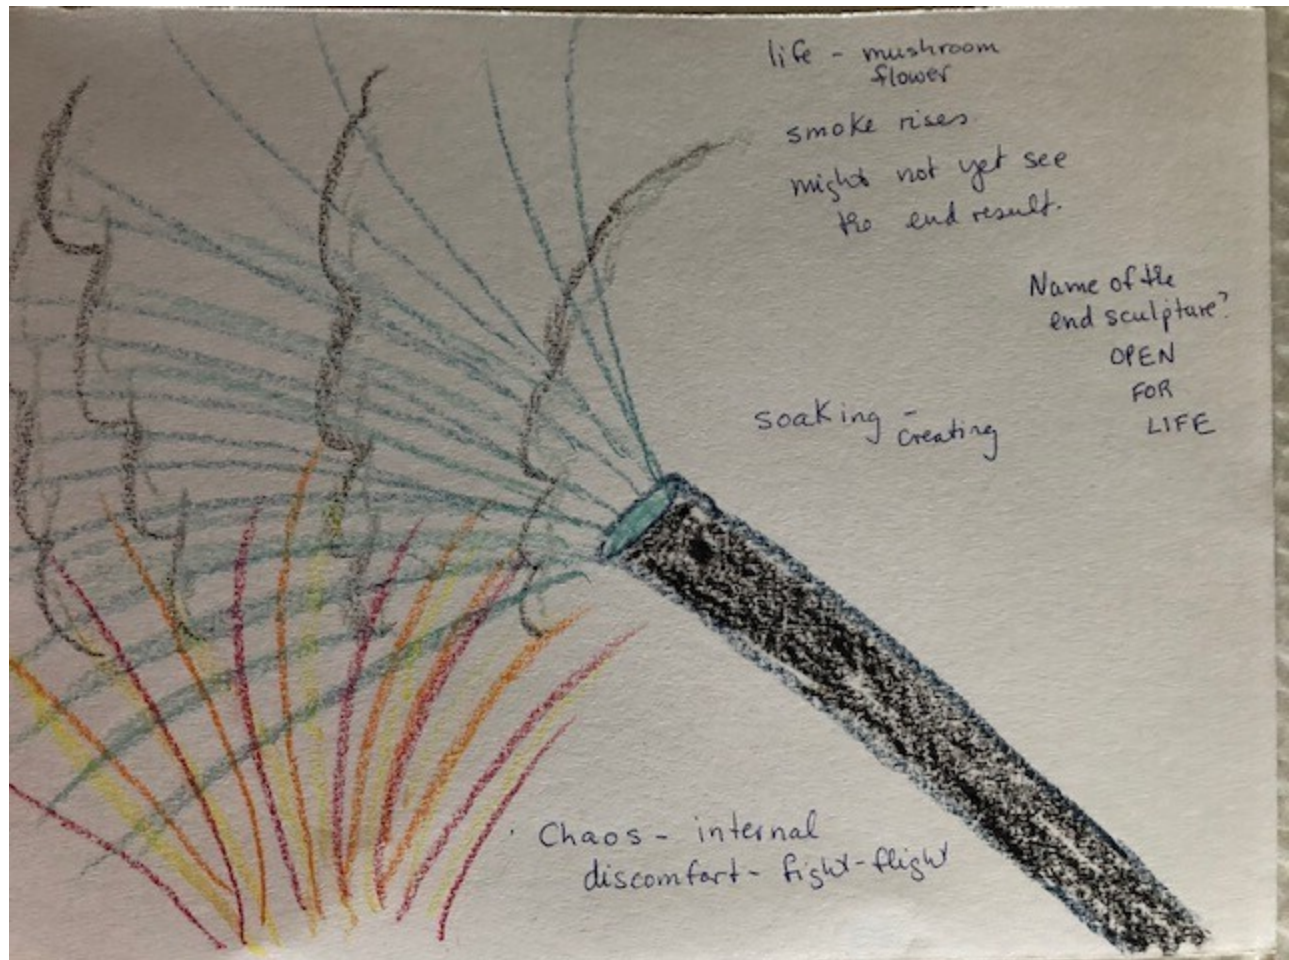 life - mushroom
flower
smoke rises
might not yet see
the end result.
Name of the
end sculpture?
OPEN
FOR
LIFE
soaking -
creating
Chaos - internal
discomfort - fight-flight